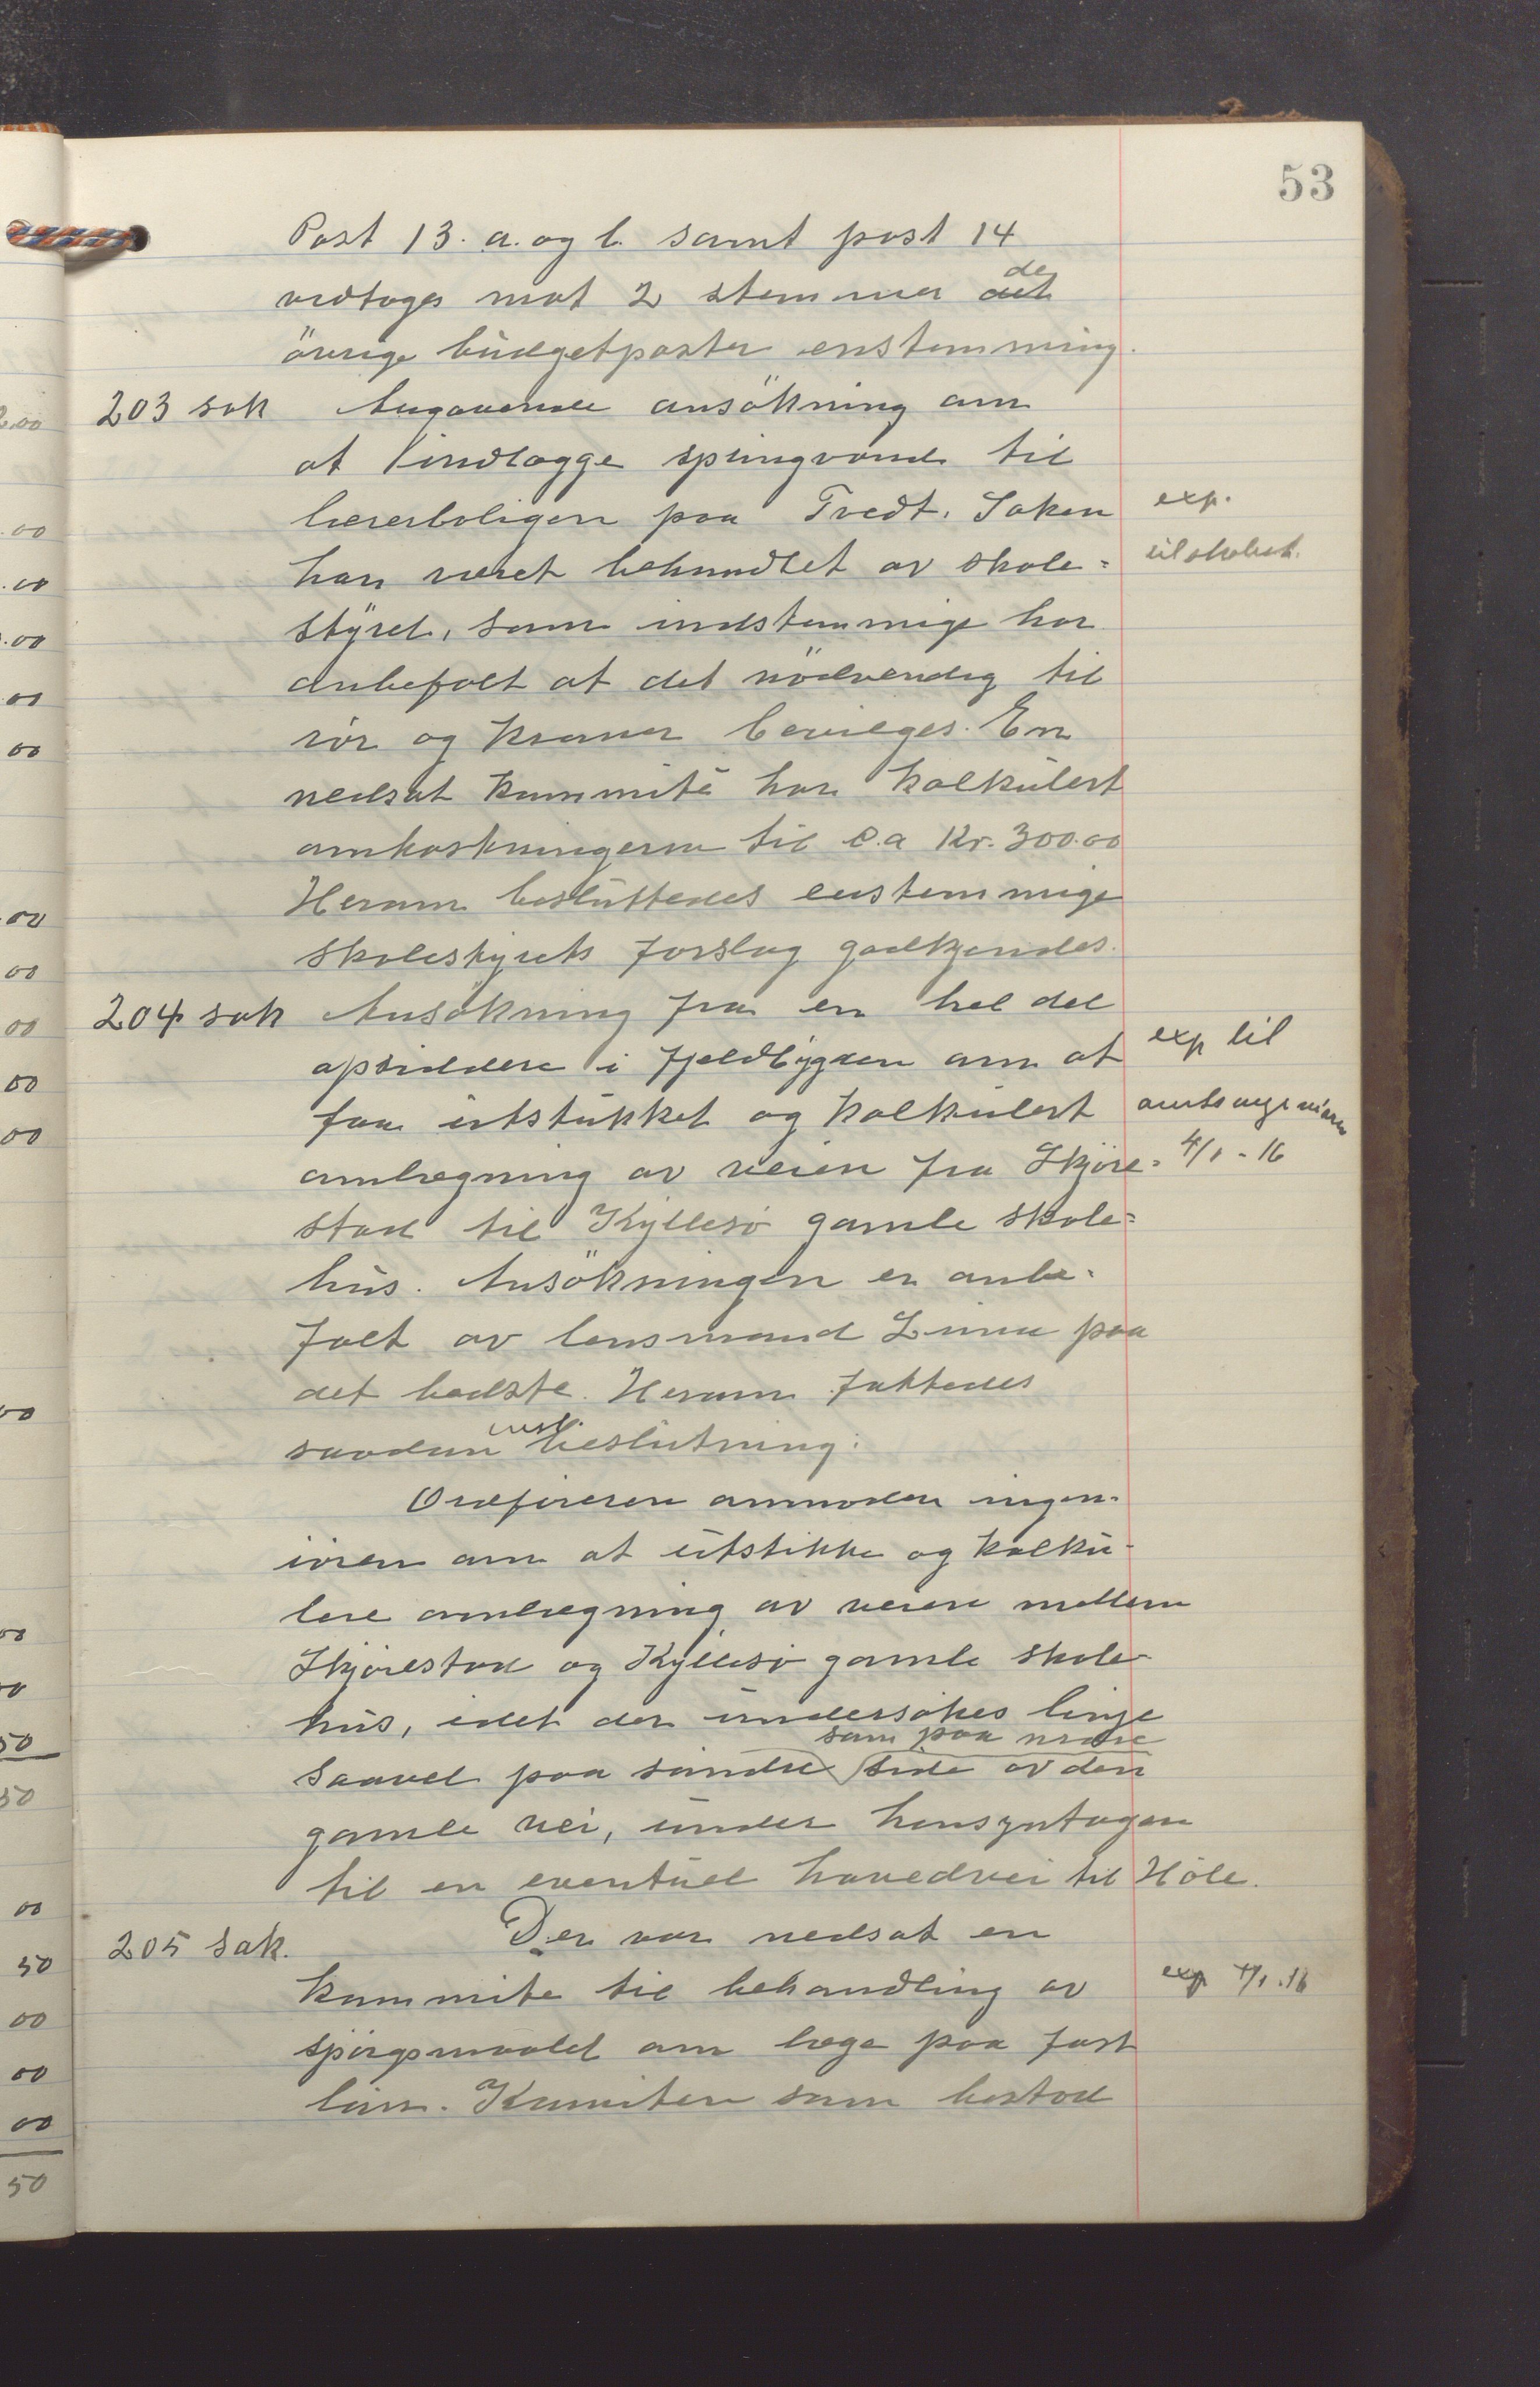 53
Post 13. a. og b. samt post 14
vedtoges mot 2 stemmer det de
övrige budgetposter enstemming.
203 sak Angaaende ansökning om
at indlægge springvand til
lærerboligen paa Tvedt. Saken
exp.
har været behandlet av skole=
til skolest.
styret, som indstemmige har
anbefalt at det nödvendig til
rör og kraner bevilges. En
nedsat kommité har kalkulert
omkostningerne til c.a Kr. 300.00
Herom besluttedes enstemmige
skolestyrets forslag godkjendes.
204 sak Ansökning fra en hel del
opsiddere i Fjeldbygden om at
exp til
faa utstukket og kalkulert
amtsingeniören
omlægning av veien fra Skjöre=
4/1 - 16
stad til Kyllesö gamle skole=
hus. Ansökningen er anbe=
falt av lensmand Lima paa
det bedste. Herom fattedes
saadan enst. beslutning:
Ordföreren anmoder ingen=
iören om at utstikke og kalku-
lere omlægning av veien mellem
Skjörestad og Kyllesö gamle skole-
hus, idet der undersökes linje
saavel paa söndre som paa nordre side av den
gamle vei, under hensyntagen
til en eventuel hovedvei til Höle.
205 sak. Der var nedsat en
kommite til behandling av
exp 4/1.16
spörgsmaalet om læge paa fast
lön. Komiteen som bestod
00
50